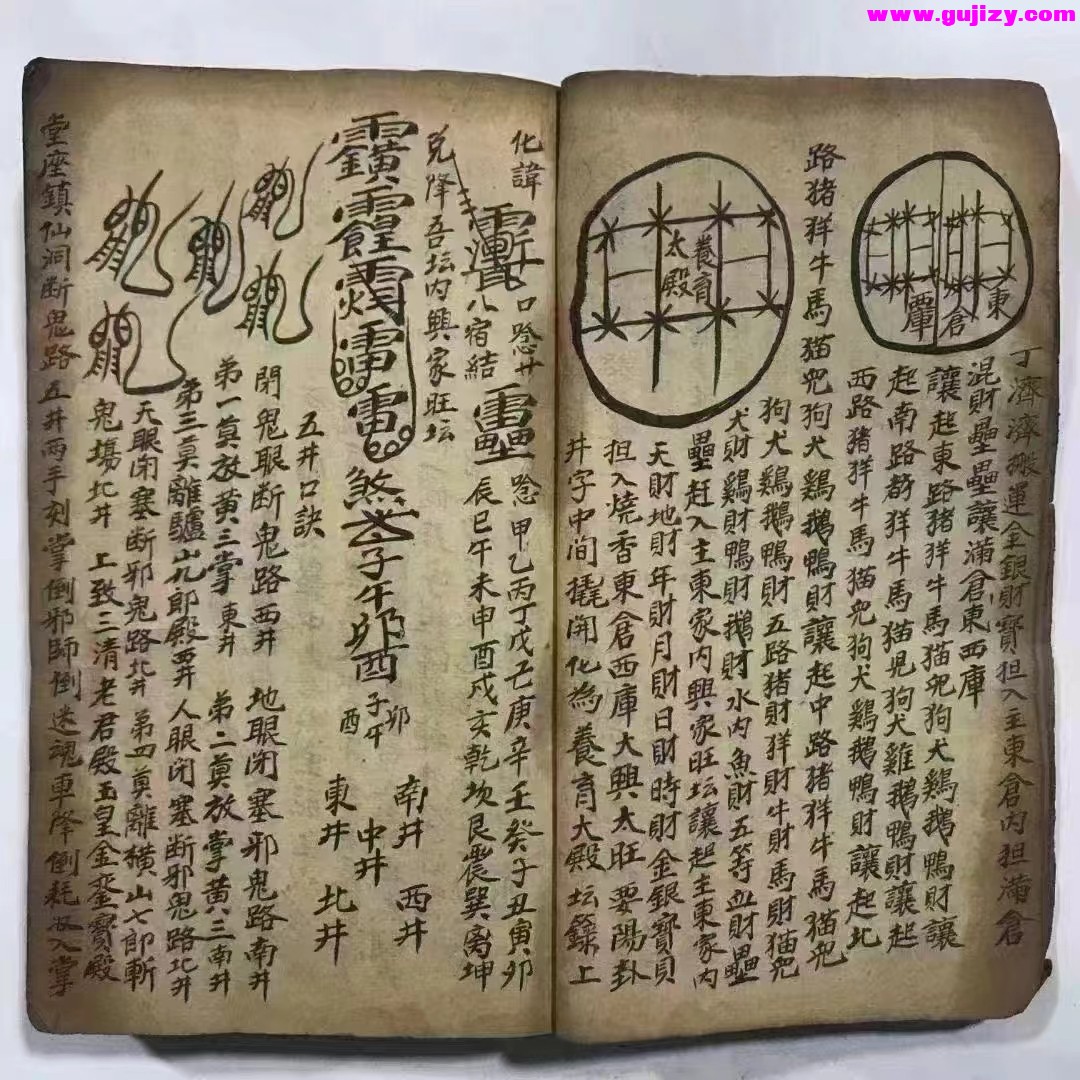 www.gujizy.com
丁濟濟搬運金銀財寶担入主東倉内担滿倉
混財壘壘讓滿倉東西庫
讓起東路猪羊牛馬猫兕狗犬鷄鵝鴨財讓
起南路猪羊牛馬猫兕狗犬雞鵝鴨財讓起
西路猪羊牛馬猫兕狗犬鷄鵝鴨財讓起北
路猪羊牛馬猫兕狗犬鷄鵝鴨財讓起中路猪羊牛馬猫兕
狗犬鷄鵝鴨財五路猪財羊財牛財馬財猫兕
犬財鷄財鴨財鵝財水内魚財五等血財壘
壘赶入主東家内興家旺坛讓起主東家内
天財地財年財月財日財時財金銀寳貝
担入燒香東倉西庫大興大旺要陽卦
井字中间撬開化為養育大殿坛籙上
東
倉
庫
養育
太殿
化諱
口唸廾八宿結
唸甲乙丙丁戊己庚辛壬癸子丑寅卯
辰巳午未申酉戌亥乾坎艮震巽离坤
兑降吾坛内興家旺坛
煞
子午卯酉
子午卯酉
南井 西井
中井
東井 北井
五井口訣
閉鬼眼断鬼路西井 地眼闭塞邪鬼路南井
弟一奠放黄三掌 東井 弟二奠放掌黄八三南井
弟三奠離驢山九郎殿西井人眼闭塞断邪鬼路北井
天眼闭塞断邪鬼路北井 弟四奠離橫山七郎斬
鬼場北井 上致三清老君殿玉皇金鑾寳殿
堂座鎮仙洞断鬼路五井两手刻掌倒邪師倒迷魂車降倒耗入掌